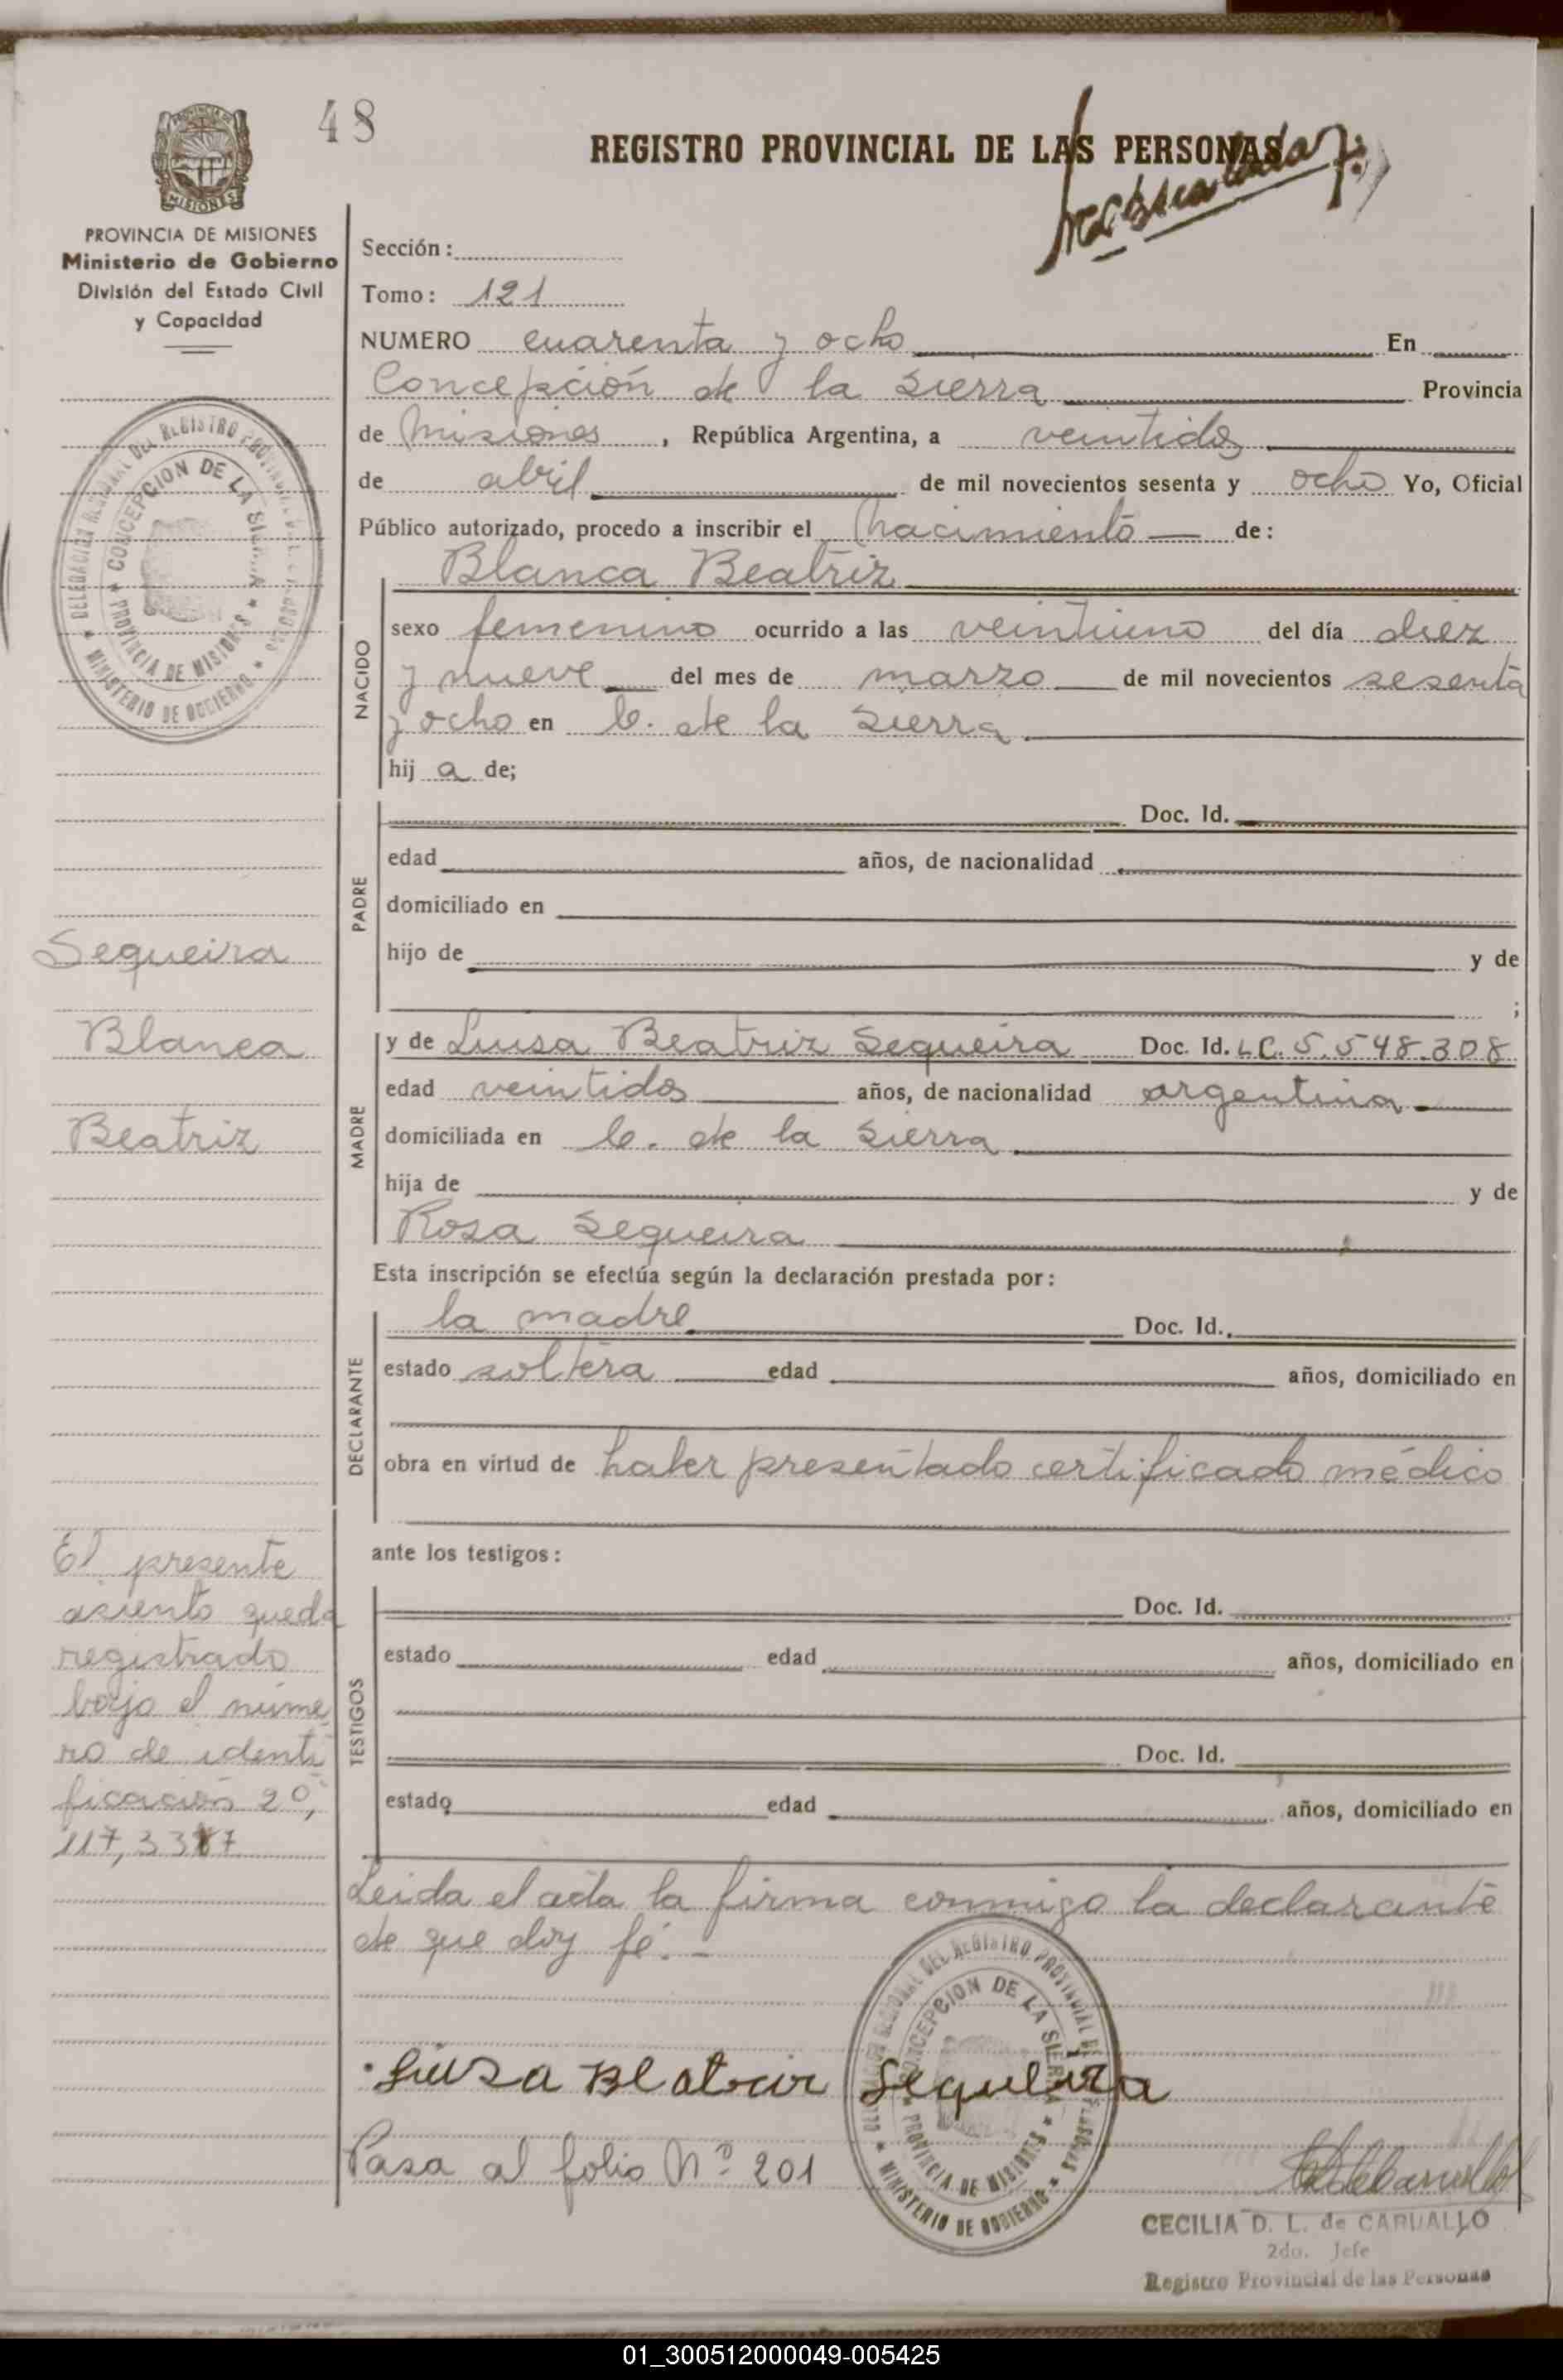 48
REGISTRO PROVINCIAL DE LAS PERSONAS
PROVINCIA DE MISIONES
Ministerio de Gobierno
División del Estado Civil
y Capacidad
Sección:
Tomo: 121
NUMERO cuarenta y ocho En
Concepción de la Sierra Provincia
de Misiones, República Argentina, a veintidos
de abril de mil novecientos sesenta y ocho Yo, Oficial
Público autorizado, procedo a inscribir el Nacimiento de:
DELEGACION REGIONAL DEL REGISTRO PROVINCIAL DE LAS PERSONAS
CONCEPCION DE LA SIERRA
PROVINCIA DE MISIONES
MINISTERIO DE GOBIERNO
NACIDO
Blanca Beatriz
sexo femenino ocurrido a las veintiuno del día diez
y nueve del mes de marzo de mil novecientos sesenta
y ocho en C. de la Sierra
hij a de;
PADRE
Doc. Id.
edad años, de nacionalidad
domiciliado en
hijo de y de
;
Sequeira
Blanca
Beatriz
MADRE
y de Luisa Beatriz Sequeira Doc. Id. L.C. 5.548.308
edad veintidos años, de nacionalidad argentina
domiciliada en C. de la Sierra
hija de y de
Rosa Sequeira
Esta inscripción se efectúa según la declaración prestada por:
DECLARANTE
la madre Doc. Id.
estado soltera edad años, domiciliado en
obra en virtud de haber presentado certificado médico
ante los testigos:
El presente
asiento queda
registrado
bajo el núme
ro de identi
ficación 20,
TESTIGOS
Doc. Id.
estado edad años, domiciliado en
Doc. Id.
estado edad años, domiciliado en
Leida el acta la firma conmigo la declarante
de que doy fé.-
Luisa Beatriz Sequeira
DELEGACION REGIONAL DEL REGISTRO PROVINCIAL DE LAS PERSONAS
CONCEPCION DE LA SIERRA
PROVINCIA DE MISIONES
MINISTERIO DE GOBIERNO
Pasa al folio Nº 201
CECILIA D. L. de CARVALLO
2do. Jefe
Registro Provincial de las Personas
01_300512000049-005425